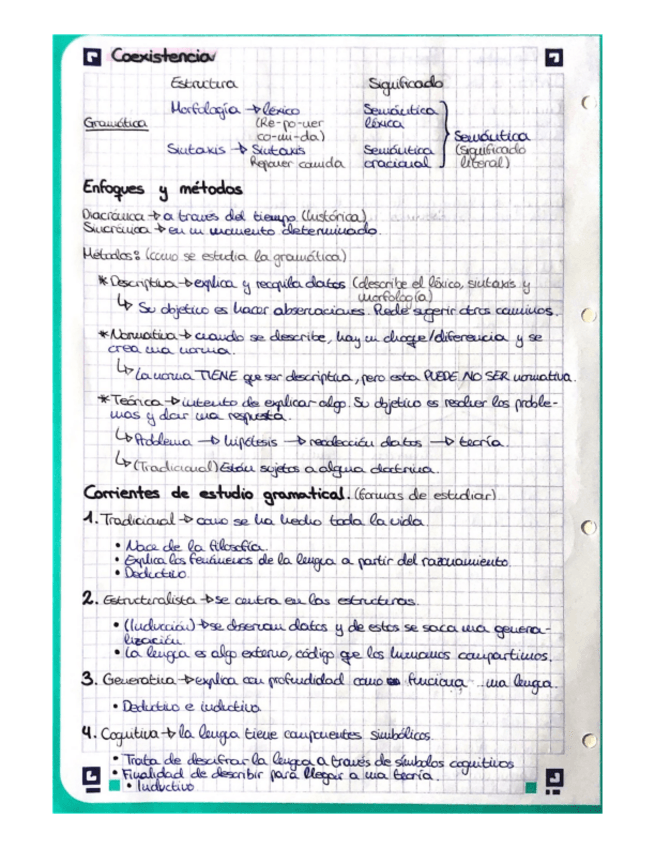 Coexistencia
Estructura Significado
Morfología → léxico Semántica
Gramática (Re-po-ner léxica
co-mi-da) Semántica
Sintaxis → Sintaxis Semántica (Significado
Reponer comida oracional literal)
Enfoques y métodos
Diacrónica → a través del tiempo (histórica)
Sincrónica → en un momento determinado.
Métodos: (como se estudia la gramática)
* Descriptiva → explica y recopila datos (describe el léxico, sintaxis y
morfología)
↳ Su objetivo es hacer observaciones. Puede sugerir otros caminos.
* Normativa → cuando se describe, hay un choque/diferencia y se
crea una norma.
↳ La norma TIENE que ser descriptiva, pero esta PUEDE NO SER normativa.
* Teórica → intento de explicar algo. Su objetivo es resolver los proble-
mas y dar una respuesta.
↳ Problema → hipótesis → recolección datos → teoría.
↳ (Tradicional) Están sujetos a alguna doctrina.
Corrientes de estudio gramatical. (formas de estudiar)
1. Tradicional → como se ha hecho toda la vida.
• Nace de la filosofía.
• Explica los fenómenos de la lengua a partir del razonamiento
• Deductivo
2. Estructuralista → se centra en las estructuras.
• (Inducción) → se observan datos y de estos se saca una genera-
lización.
• La lengua es algo externo, código que los humanos compartimos.
3. Generativa → explica con profundidad como funciona una lengua.
• Deductivo e inductivo
4. Cognitiva → la lengua tiene componentes simbólicos.
• Trata de descifrar la lengua a través de símbolos cognitivos
• Finalidad de describir para llegar a una teoría.
• Inductivo